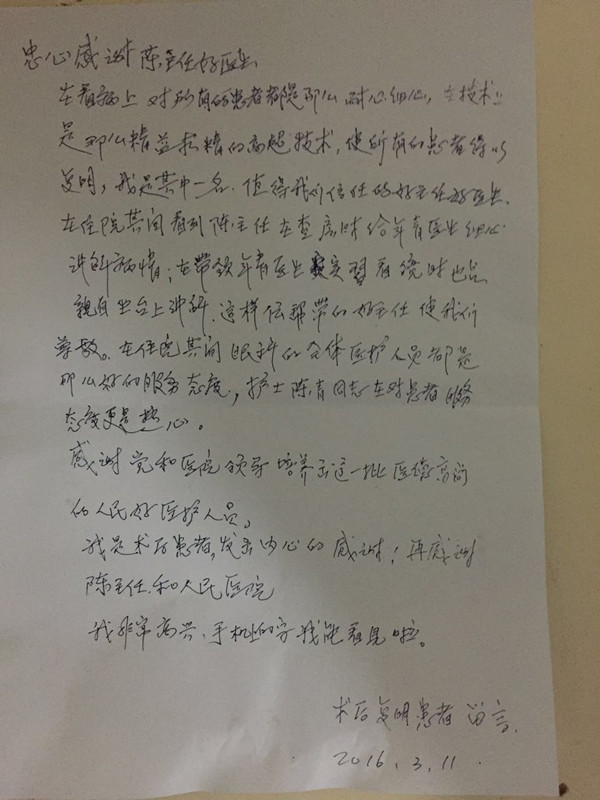 忠心感谢陈主任好医生
在看病上对所有的患者都是那么耐心细心,在技术上
是那么精益求精的高超技术,使所有的患者得以
复明,我是其中一名.值得我们信任的好主任好医生.
在住院其间看到陈主任在查房时给年青医生细心
讲解病情;在带领年青医生实習看镜时也是
亲自坐台上讲解.这样传帮带的好主任使我们
尊敬。在住院其间眼科的全体医护人员都是
那么好的服务态度,护士陈青同志在对患者服务
态度更是热心。
感谢党和医院领导培养出这一批医德高尚
的人民好医护人员。
我是术后患者,发出内心的感谢!再感谢
陈主任.和人民医院
我非常高兴、手机上的字我能看見啦。
术后复明患者 留言.
2016.3.11.